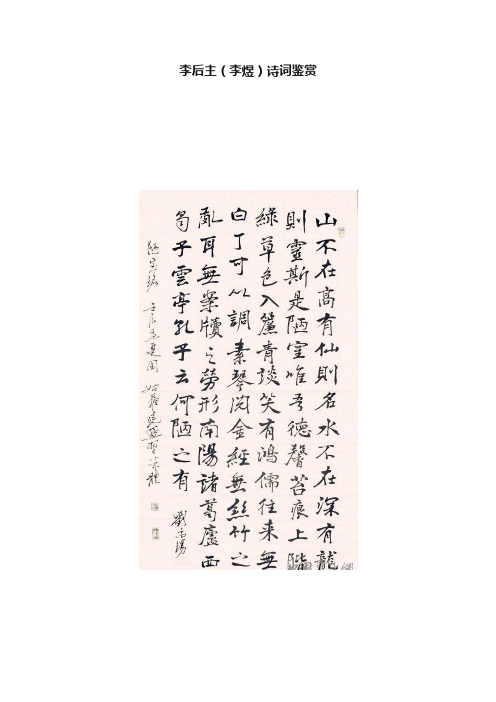 李后主（李煜）诗词鉴赏
山不在高有仙則名水不在深有龍
則靈斯是陋室唯吾德馨苔痕上階
綠草色入簾青談笑有鴻儒往來無
白丁可以調素琴閱金經無絲竹之
亂耳無案牘之勞形南陽諸葛廬西
蜀子雲亭孔子云何陋之有
劉禹錫
陋室銘